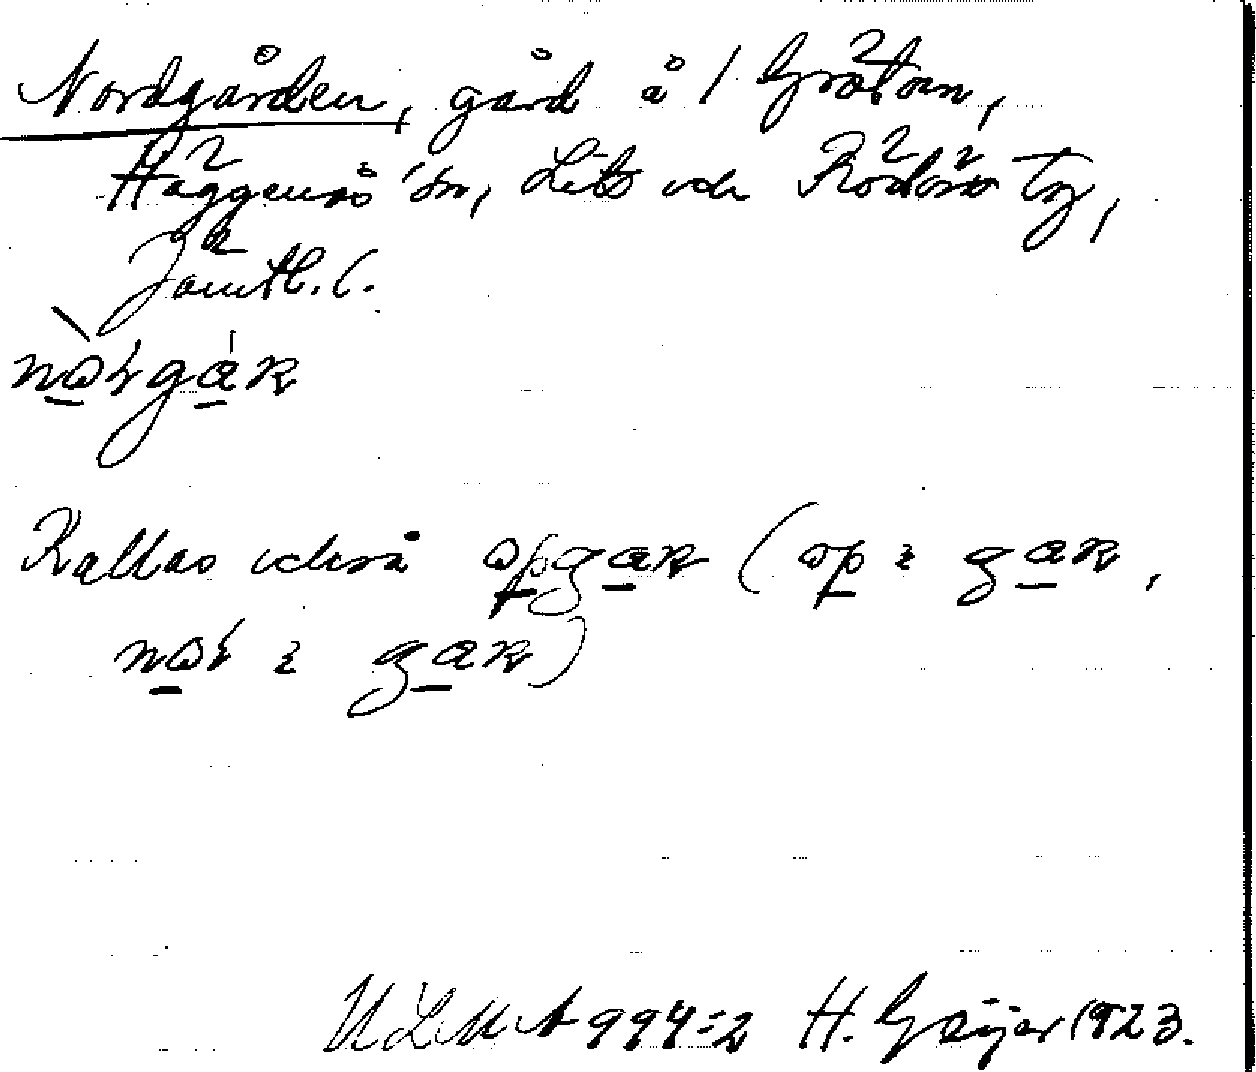 Nordgården, gård å 1 Grötom,
Häggenås sn, Lits och Rödöns tg,
Jämtl. l.
nɷrgaʀ
Kallas också ɷpgaʀ (ɷp i gaʀ,
nɷr i gaʀ)
ULMA 994:2 H. Geijer 1923.